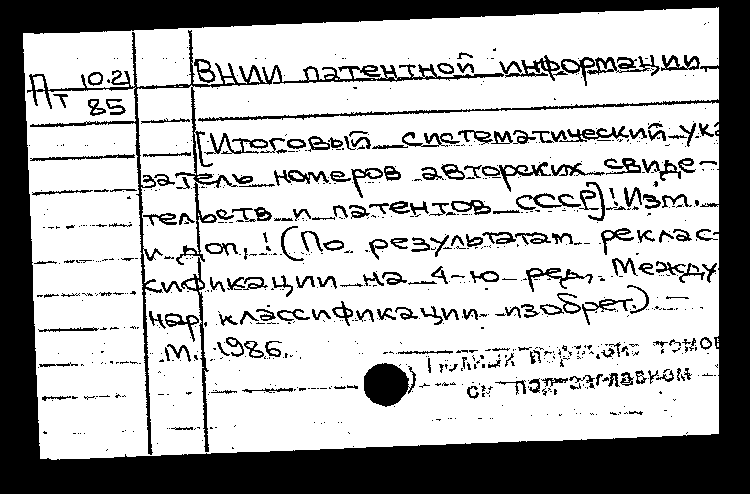 Пт 10.21
85
ВНИИ патентной информации.
[Итоговый систематический ука
затель номеров авторских свиде-
тельств и патентов СССР]! Изм.
и доп. ! (По результатам реклас-
сификации на 4-ю ред. Между
нар. классификации изобрет.) –
М. 1986.
томов
см под заглавном